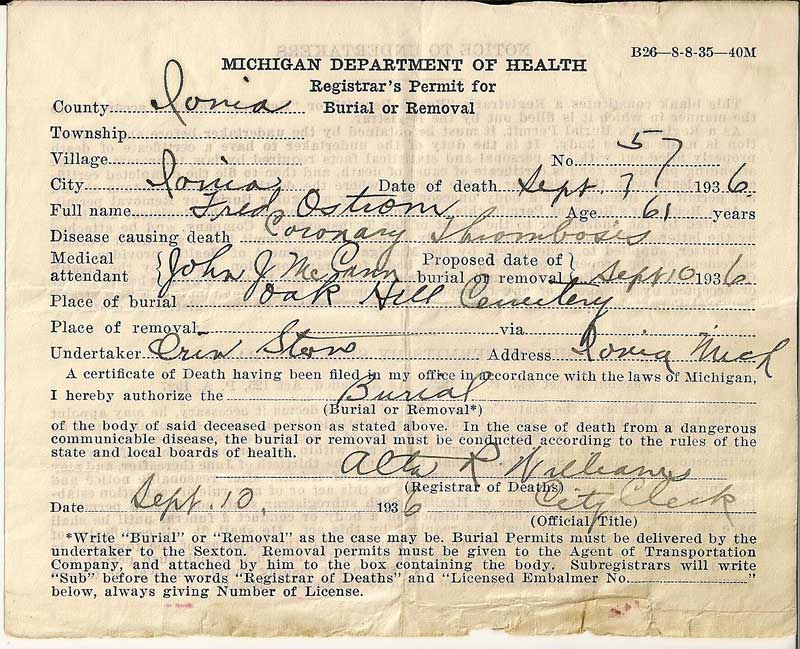 B26—8-8-35—40M
MICHIGAN DEPARTMENT OF HEALTH
Registrar's Permit for
Burial or Removal
County Ionia
Township
Village
No. 57
City Ionia Date of death Sept. 7 1936
Full name Fred Ostrom Age 61 years
Disease causing death Coronary Thrombosis
Medical attendant } John J McCann Proposed date of burial or removal } Sept 10 1936
Place of burial Oak Hill Cemetery
Place of removal via
Undertaker Orin Stone Address Ionia Mich
A certificate of Death having been filed in my office in accordance with the laws of Michigan,
I hereby authorize the Burial
(Burial or Removal*)
of the body of said deceased person as stated above. In the case of death from a dangerous
communicable disease, the burial or removal must be conducted according to the rules of the
state and local boards of health.
Alta R. Williams
(Registrar of Deaths)
Date Sept. 10, 1936 City Clerk
(Official Title)
*Write "Burial" or "Removal" as the case may be. Burial Permits must be delivered by the
undertaker to the Sexton. Removal permits must be given to the Agent of Transportation
Company, and attached by him to the box containing the body. Subregistrars will write
"Sub" before the words "Registrar of Deaths" and "Licensed Embalmer No. "
below, always giving Number of License.